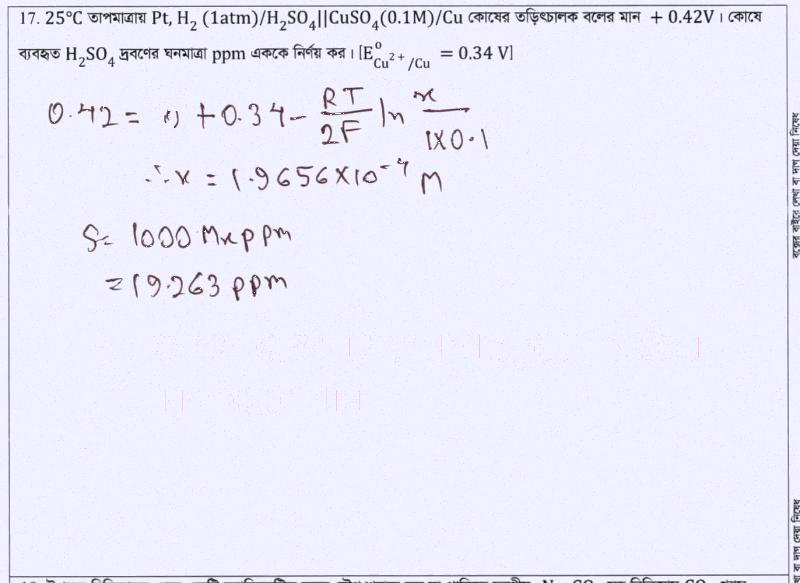 17. 25°C তাপমাত্রায় Pt, H₂ (1atm)/H₂SO₄||CuSO₄(0.1M)/Cu কোষের তড়িৎচালক বলের মান + 0.42V। কোষে
ব্যবহৃত H₂SO₄ দ্রবণের ঘনমাত্রা ppm এককে নির্ণয় কর। [E⁰Cu²⁺/Cu = 0.34 V]
0.42 = + 0.34 - RT/2F ln x/1×0.1
∴ x = 1.9656×10⁻⁴ M
S = 1000 Mx ppm
= 19.263 ppm